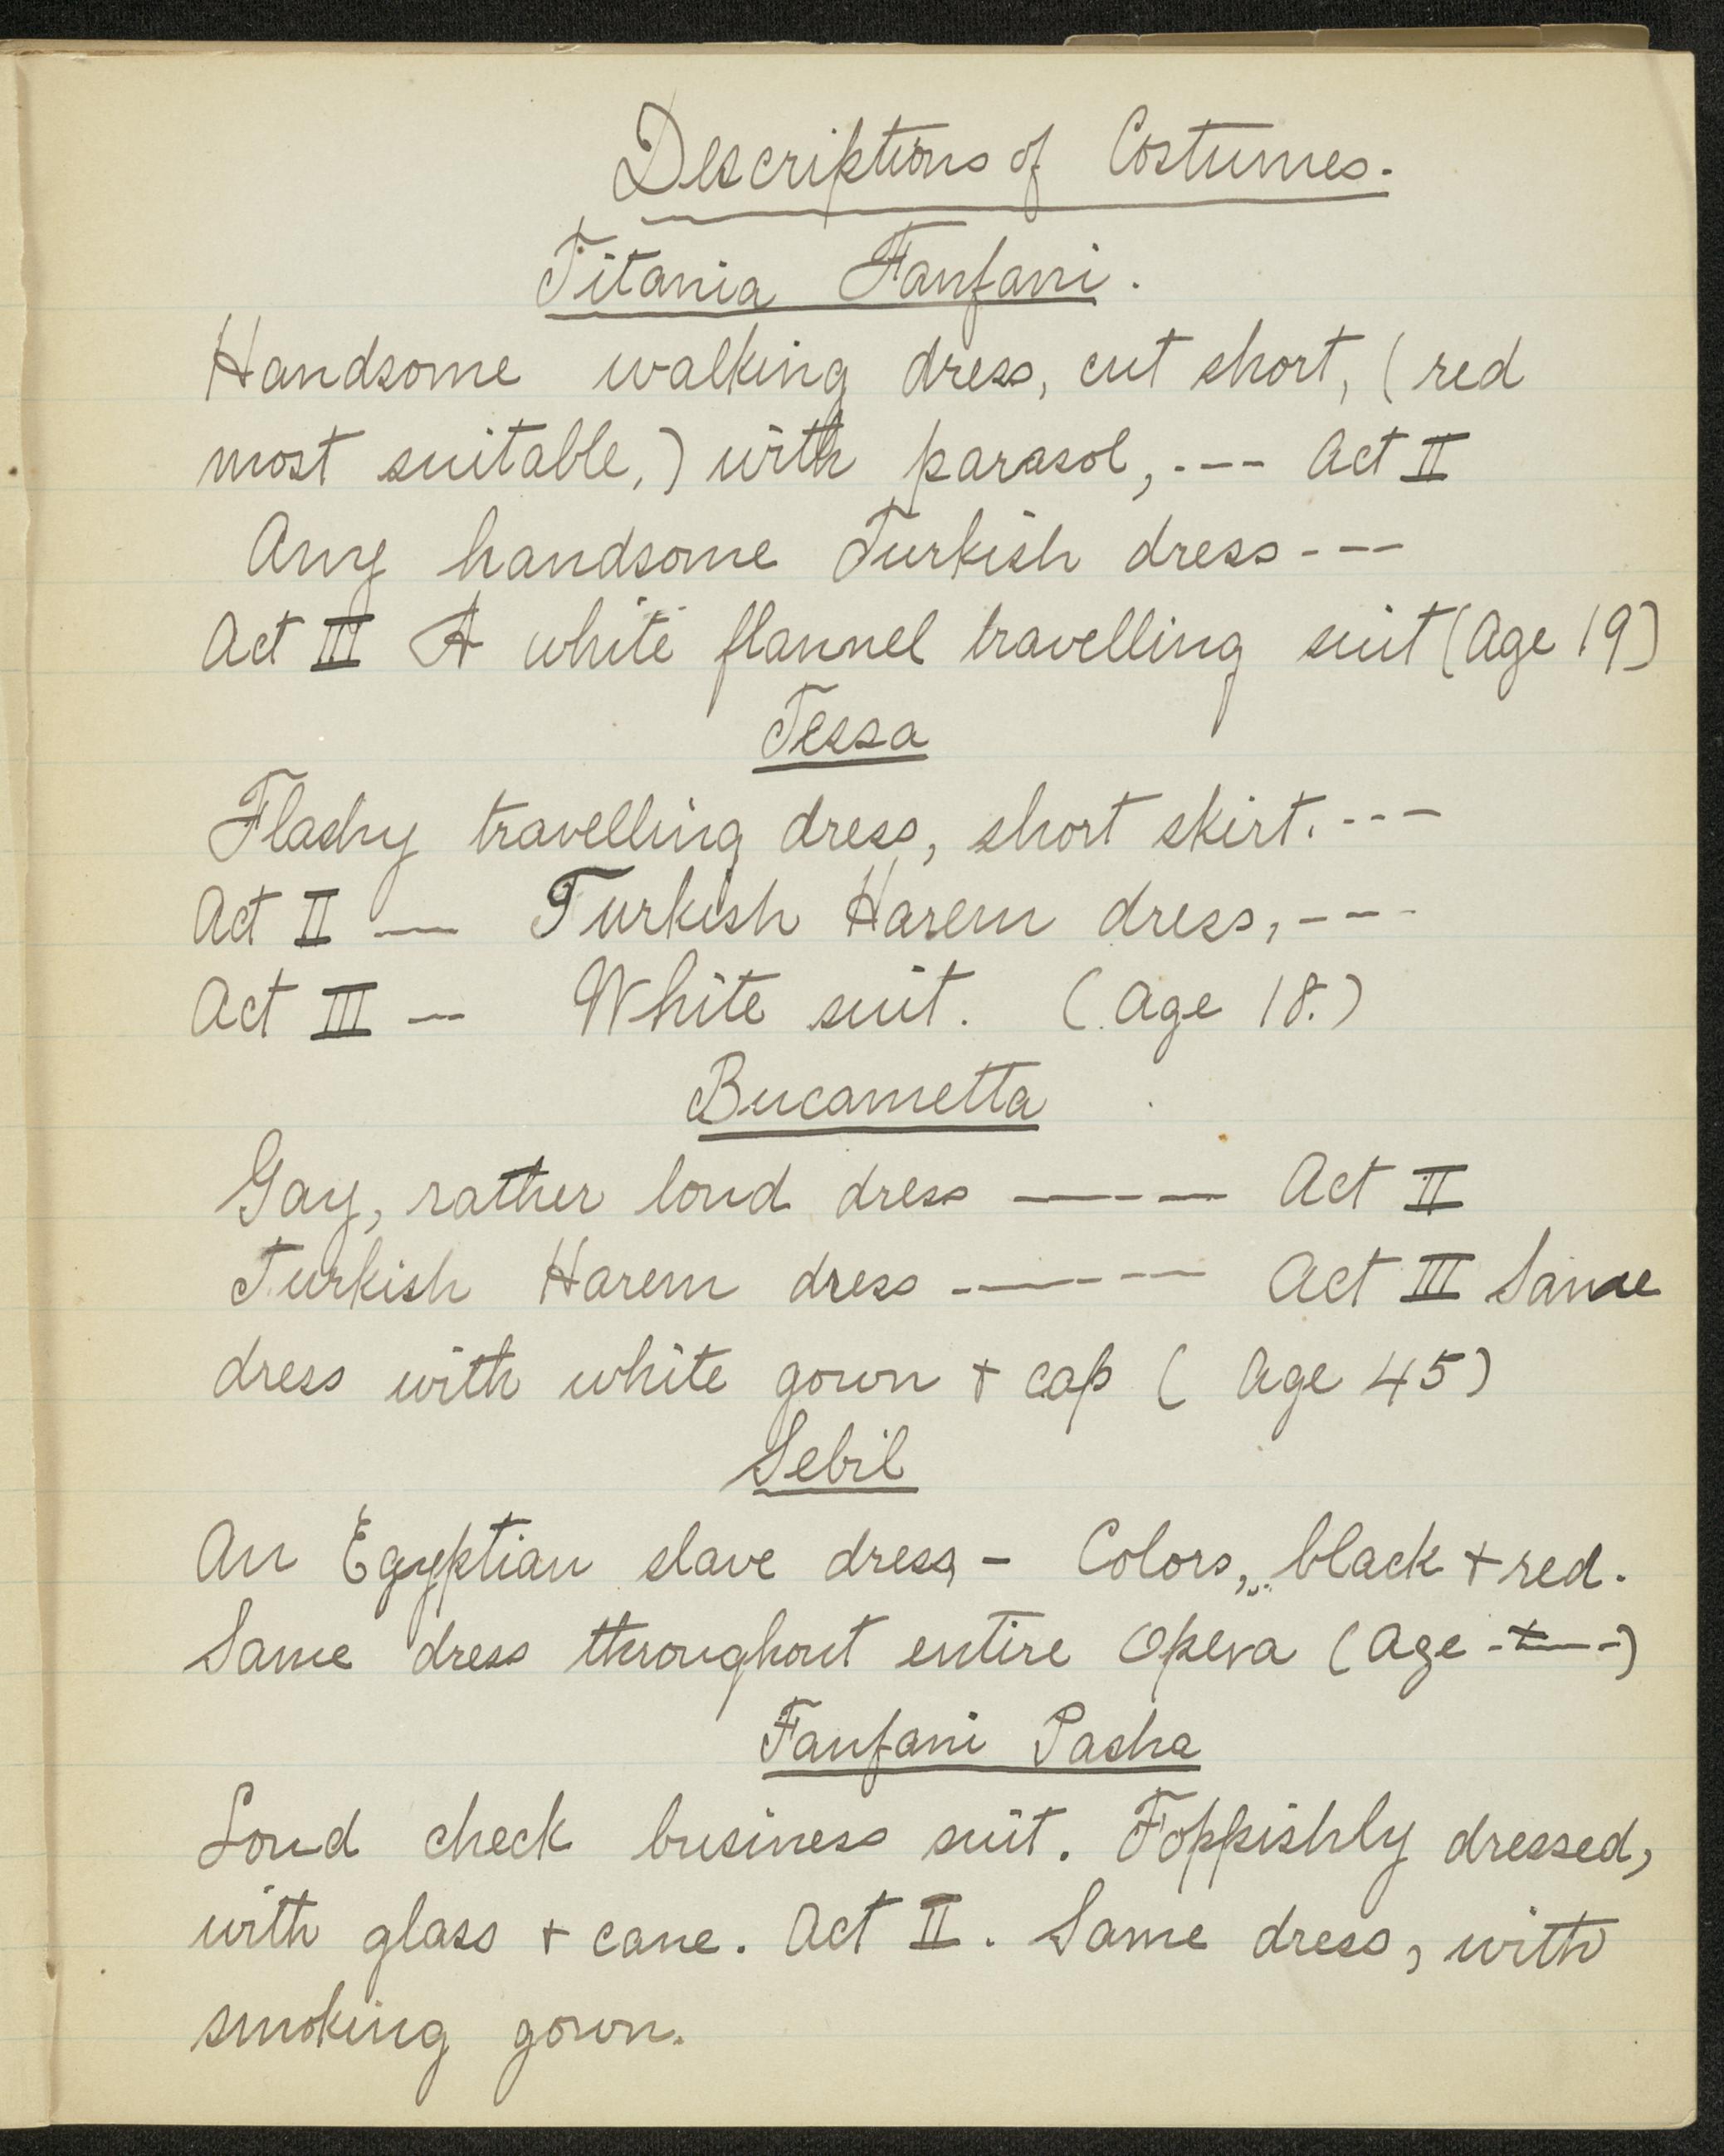 Descriptions of Costumes.
Titania Fanfani.
Handsome walking dress, cut short, (red
most suitable,) with parasol, --- Act II
Any handsome Turkish dress ---
Act III A white flannel travelling suit (Age 19)
Tessa
Flashy travelling dress, short skirt. ---
Act II — Turkish Harem dress, ---
Act III — White suit. (Age 18.)
Bucametta
Gay, rather loud dress ——-— Act II
Turkish Harem dress -——--— Act III Same
dress with white gown + cap (Age 45)
Sebil
An Egyptian slave dress - Colors, black + red.
Same dress throughout entire Opera (Age ----)
Fanfani Pasha
Loud check business suit. Foppishly dressed,
with glass + cane. Act II. Same dress, with
smoking gown.